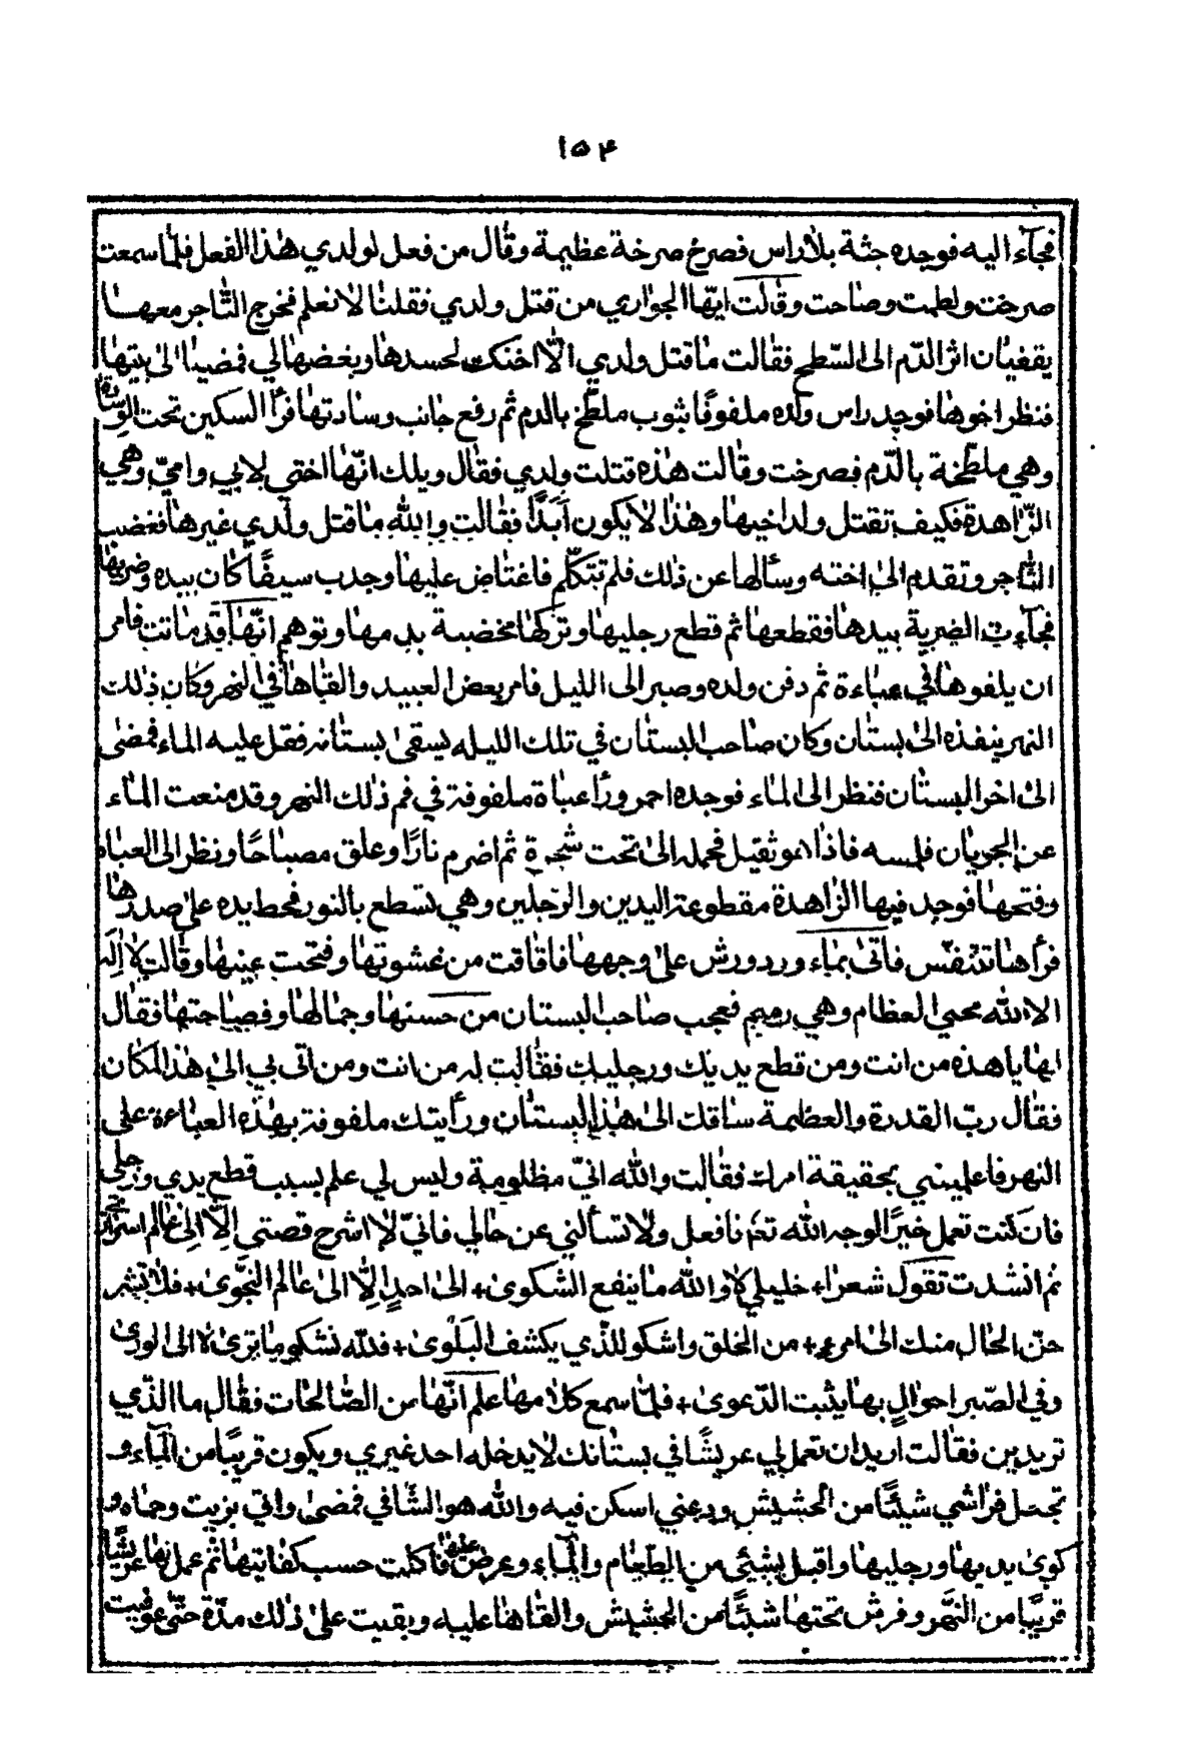 ١٥۴
فجآء اليه فوجده جثة بلاراس فصرخ صرخة عظيمة وقال من فعل لولدي هٰذا الفعل فلمّا سمعت
صرخت ولطمت وصاحت وقالت ايّها الجواري من قتل ولدي فقلنا لا نعلم فخرج التّاجر معهما
يقفيان اثر الدّم الى السّطح فقالت ما قتل ولدي الّا اختك لحسدها وبغضها لي فمضيا الىٰ بيتها
فنظر اخوها فوجد راس ولده ملفوفًا بثوب ملطّخ بالدم ثم رفع جانب وسادتها فرأ السكين تحت الوسّادة
وهي ملطّخة بالدّم فصرخت وقالت هٰذه قتلت ولدي فقال ويلك انّها اختي لابي وامّي وهي
الزّاهدة فكيف تقتل ولد اخيها وهٰذا لا يكون اَبَدًا فقالت والله ما قتل ولدي غيرها فغضب
التّاجر وتقدم الىٰ اخته وسألها عن ذٰلك فلم تتكلّم فاغتاض عليها وجذب سيفًا كان بيده وضربها
فجآءت الضربة بيدها فقطعها ثم قطع رجليها وتركها مخضبة بدمها وتوهم انّها قد ماتت فامر
ان يلفوها في عباءة ثم دفن ولده وصبر الى الليل فامر بعض العبيد والقاها في النهر وكان ذٰلك
النهر ينفذه الىٰ بستان وكان صاحب البستان في تلك الليله يسقىٰ بستانه فقل عليه الماء فمضىٰ
الىٰ اخر البستان فنظر الى الماء فوجده احمر ورأ عباة ملفوفة في فم ذٰلك النهر وقد منعت المآء
عن الجريان فلمسه فاذا هو ثقيل فحمله الىٰ تحت شجرة ثم اضرم نارًا وعلق مصباحًا ونظر الى العباه
وفتحها فوجد فيها الزّاهدة مقطوعة اليدين والرّجلين وهي تسطع بالنور فحط يده علىٰ صدرها
فرأها تتنفّس فاتىٰ بماء ورد ورش علىٰ وجهها فاقاقت من غشوتها وفتحت عينها وقالت لا اِلٰه
الا الله محيى العظام وهي رميم فعجب صاحب البستان من حسنها وجمالها وفصاحتها فقال
لها يا هذه من انت ومن قطع يديك ورجليك فقالت له من انت ومن اتى بي الىٰ هٰذا المكان
فقال ربّ القدرة والعظمة ساقك الىٰ هٰذا البستان ورأيتك ملفوفة بهٰذه العباءة على
النهر فاعلميني بحقيقة امرك فقالت والله انيّ مظلومة وليس لي علم بسبب قطع يدي ورجلي
فان كنت تعمل خيرًا لوجه الله تعٰ فافعل ولا تسألني عن حالي فانيّ لا اشرح قصتي اِلّا الىٰ عالم اسراري
ثم انشدت تقول شعرا+ خليلي لا والله ما ينفع الشكوىٰ+ الىٰ احدٍ اِلّا الىٰ عالم النّجوىٰ+ فلا تشر
حنّ الحال منك الىٰ امرء+ من الخلق واشكو للّذي يكشف البَلْوىٰ+ فلله نشكو ما نرىٰ لا الى الورىٰ
وفي الصّبر احوالٍ بها يثبت الدّعوىٰ+ فلمّا سمع كلامها علم انّها من الصّالحات فقال ما الّذي
تريدين فقالت اريد ان تعمل لي عريشًا في بستانك لا يدخله احد غيري ويكون قريبًا من المآء و
تجعل فراشي شيئًا من الحشيش ودعني اسكن فيه والله هو الشّافي فمضىٰ واتى بزيت وحماه و
كوىٰ يديها ورجليها واقبل بشيئ من الطّعام والمآء وعرض عليها فاكلت حسب كفايتها ثم عمل لها عريشًا
قريبًا من النّهر وفرش تحتها شيئًا من الحشيش والقاها عليه وبقيت علىٰ ذٰلك مدّة حتّى عوفيت